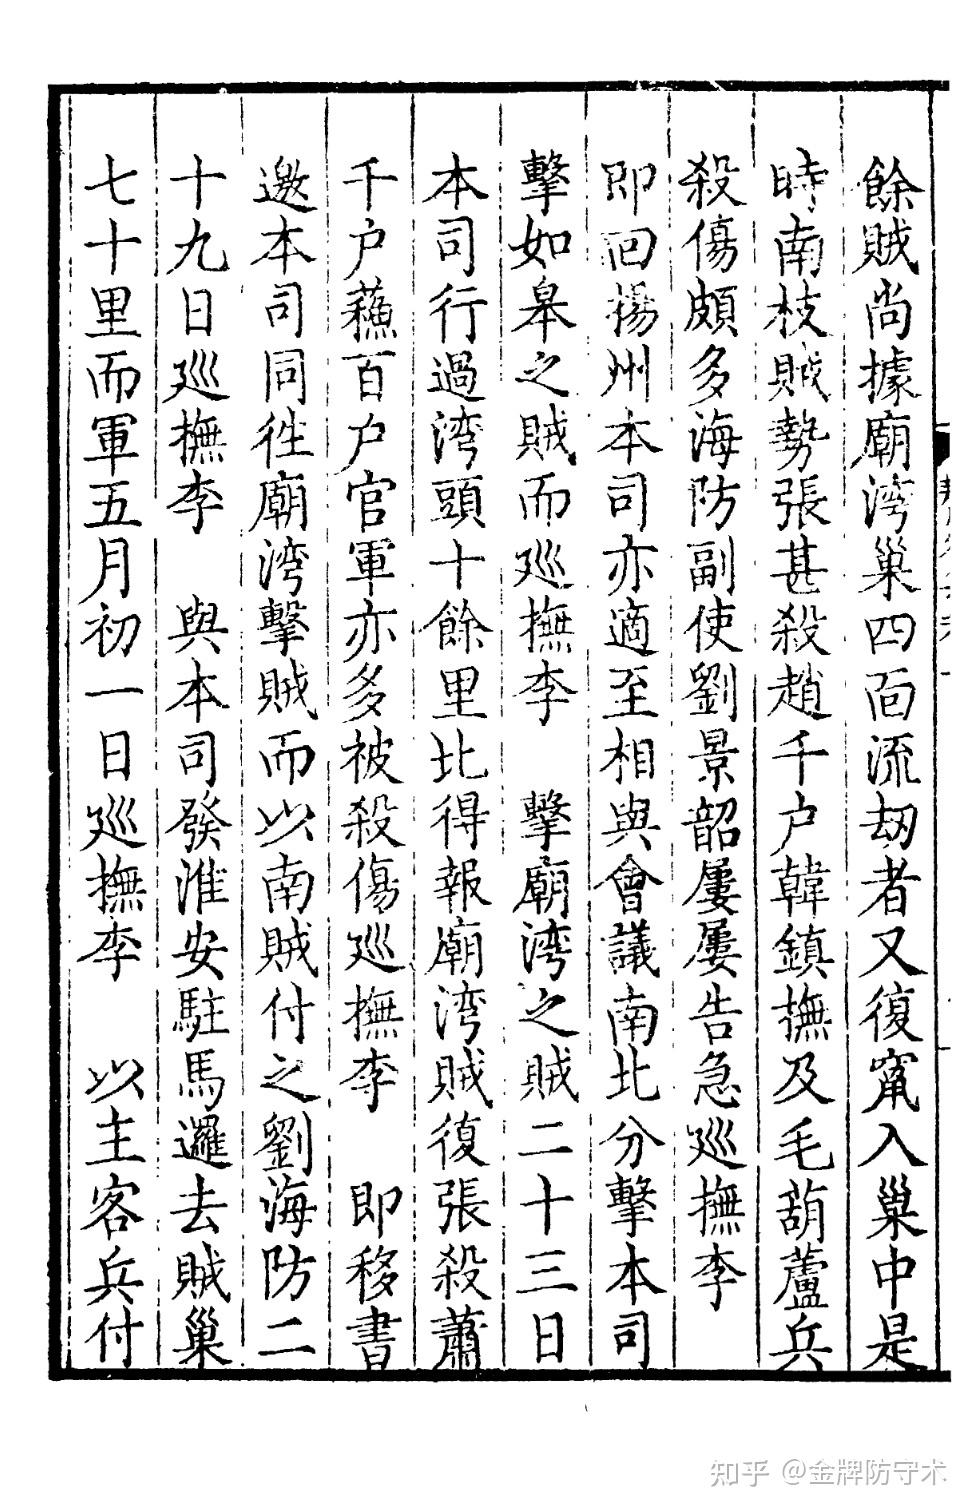 餘賊尚據廟湾巢四面流刼者又復竄入巢中是
時南枝賊勢張甚殺趙千户韓鎮撫及毛葫蘆兵
殺傷頗多海防副使劉景韶屢屢告急廵撫李
即回揚州本司亦適至相與會議南北分擊本司
擊如皋之賊而廵撫李　擊廟湾之賊二十三日
本司行過湾頭十餘里比得報廟湾賊復張殺蕭
千户蘓百户官軍亦多被殺傷廵撫李　即移書
邀本司同徃廟湾擊賊而以南賊付之劉海防二
十九日廵撫李　與本司發淮安駐馬邏去賊巢
七十里而軍五月初一日廵撫李　以主客兵付
知乎 @金牌防守术